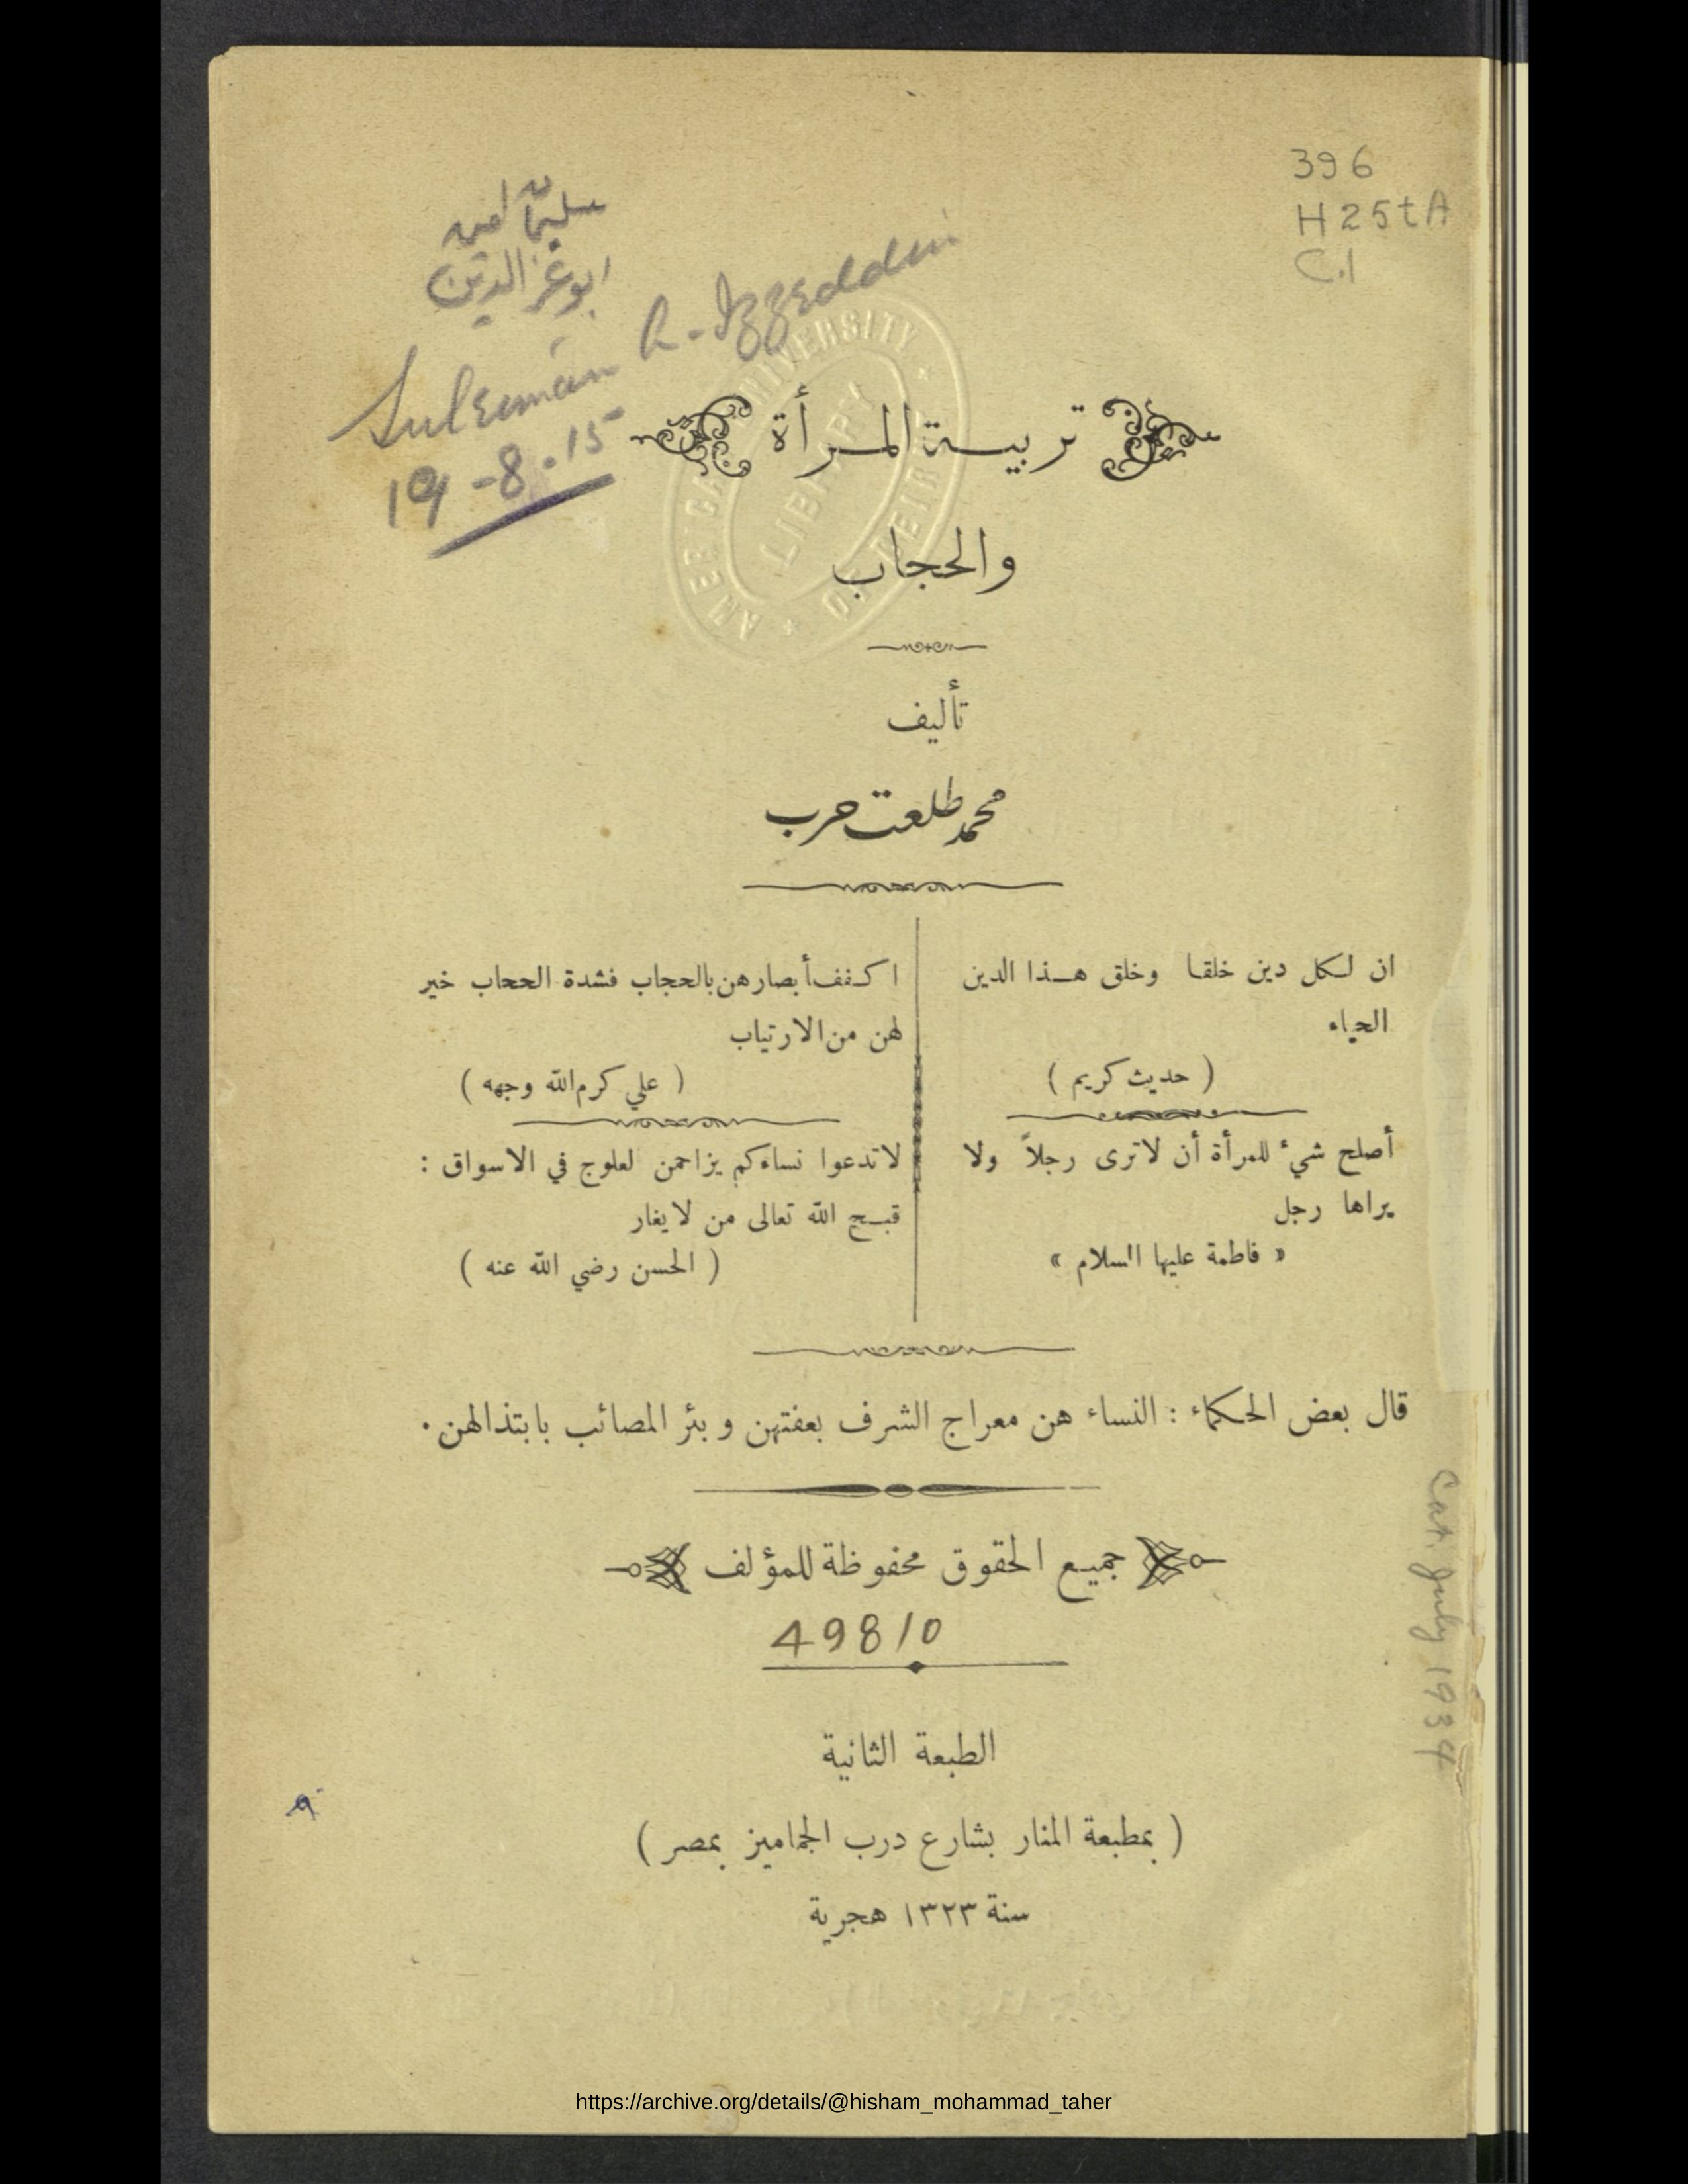 396
H25tA
C.1
ابو عز الدين
Suleiman R. Izzeddin
19-8.15
AMERICAN UNIVERSITY OF BEIRUT
LIBRARY
تربية المرأة
والحجاب
تأليف
محمد طلعت حرب
ان لكل دين خلقا وخلق هذا الدين
الحياء
( حديث كريم )
أصلح شيء للمرأة أن لا ترى رجلاً ولا
يراها رجل
« فاطمة عليها السلام »
اكفف أبصارهن بالحجاب فشدة الححاب خير
لهن من الارتياب
( علي كرم الله وجهه )
لا تدعوا نساءكم يزاحمن لعلوج في الاسواق :
قبح الله تعالى من لا يغار
( الحسن رضي الله عنه )
قال بعض الحكماء : النساء هن معراج الشرف بعفتهن و بئر المصائب بابتذالهن .
جميع الحقوق محفوظة للمؤلف
49810
Cat. July 1934
الطبعة الثانية
( بمطبعة المنار بشارع درب الجماميز بمصر )
سنة ١٣٢٣ هجرية
https://archive.org/details/@hisham_mohammad_taher